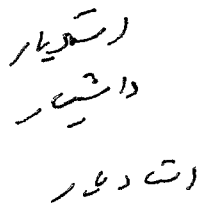 استادیار
دانشیار
استاد یار